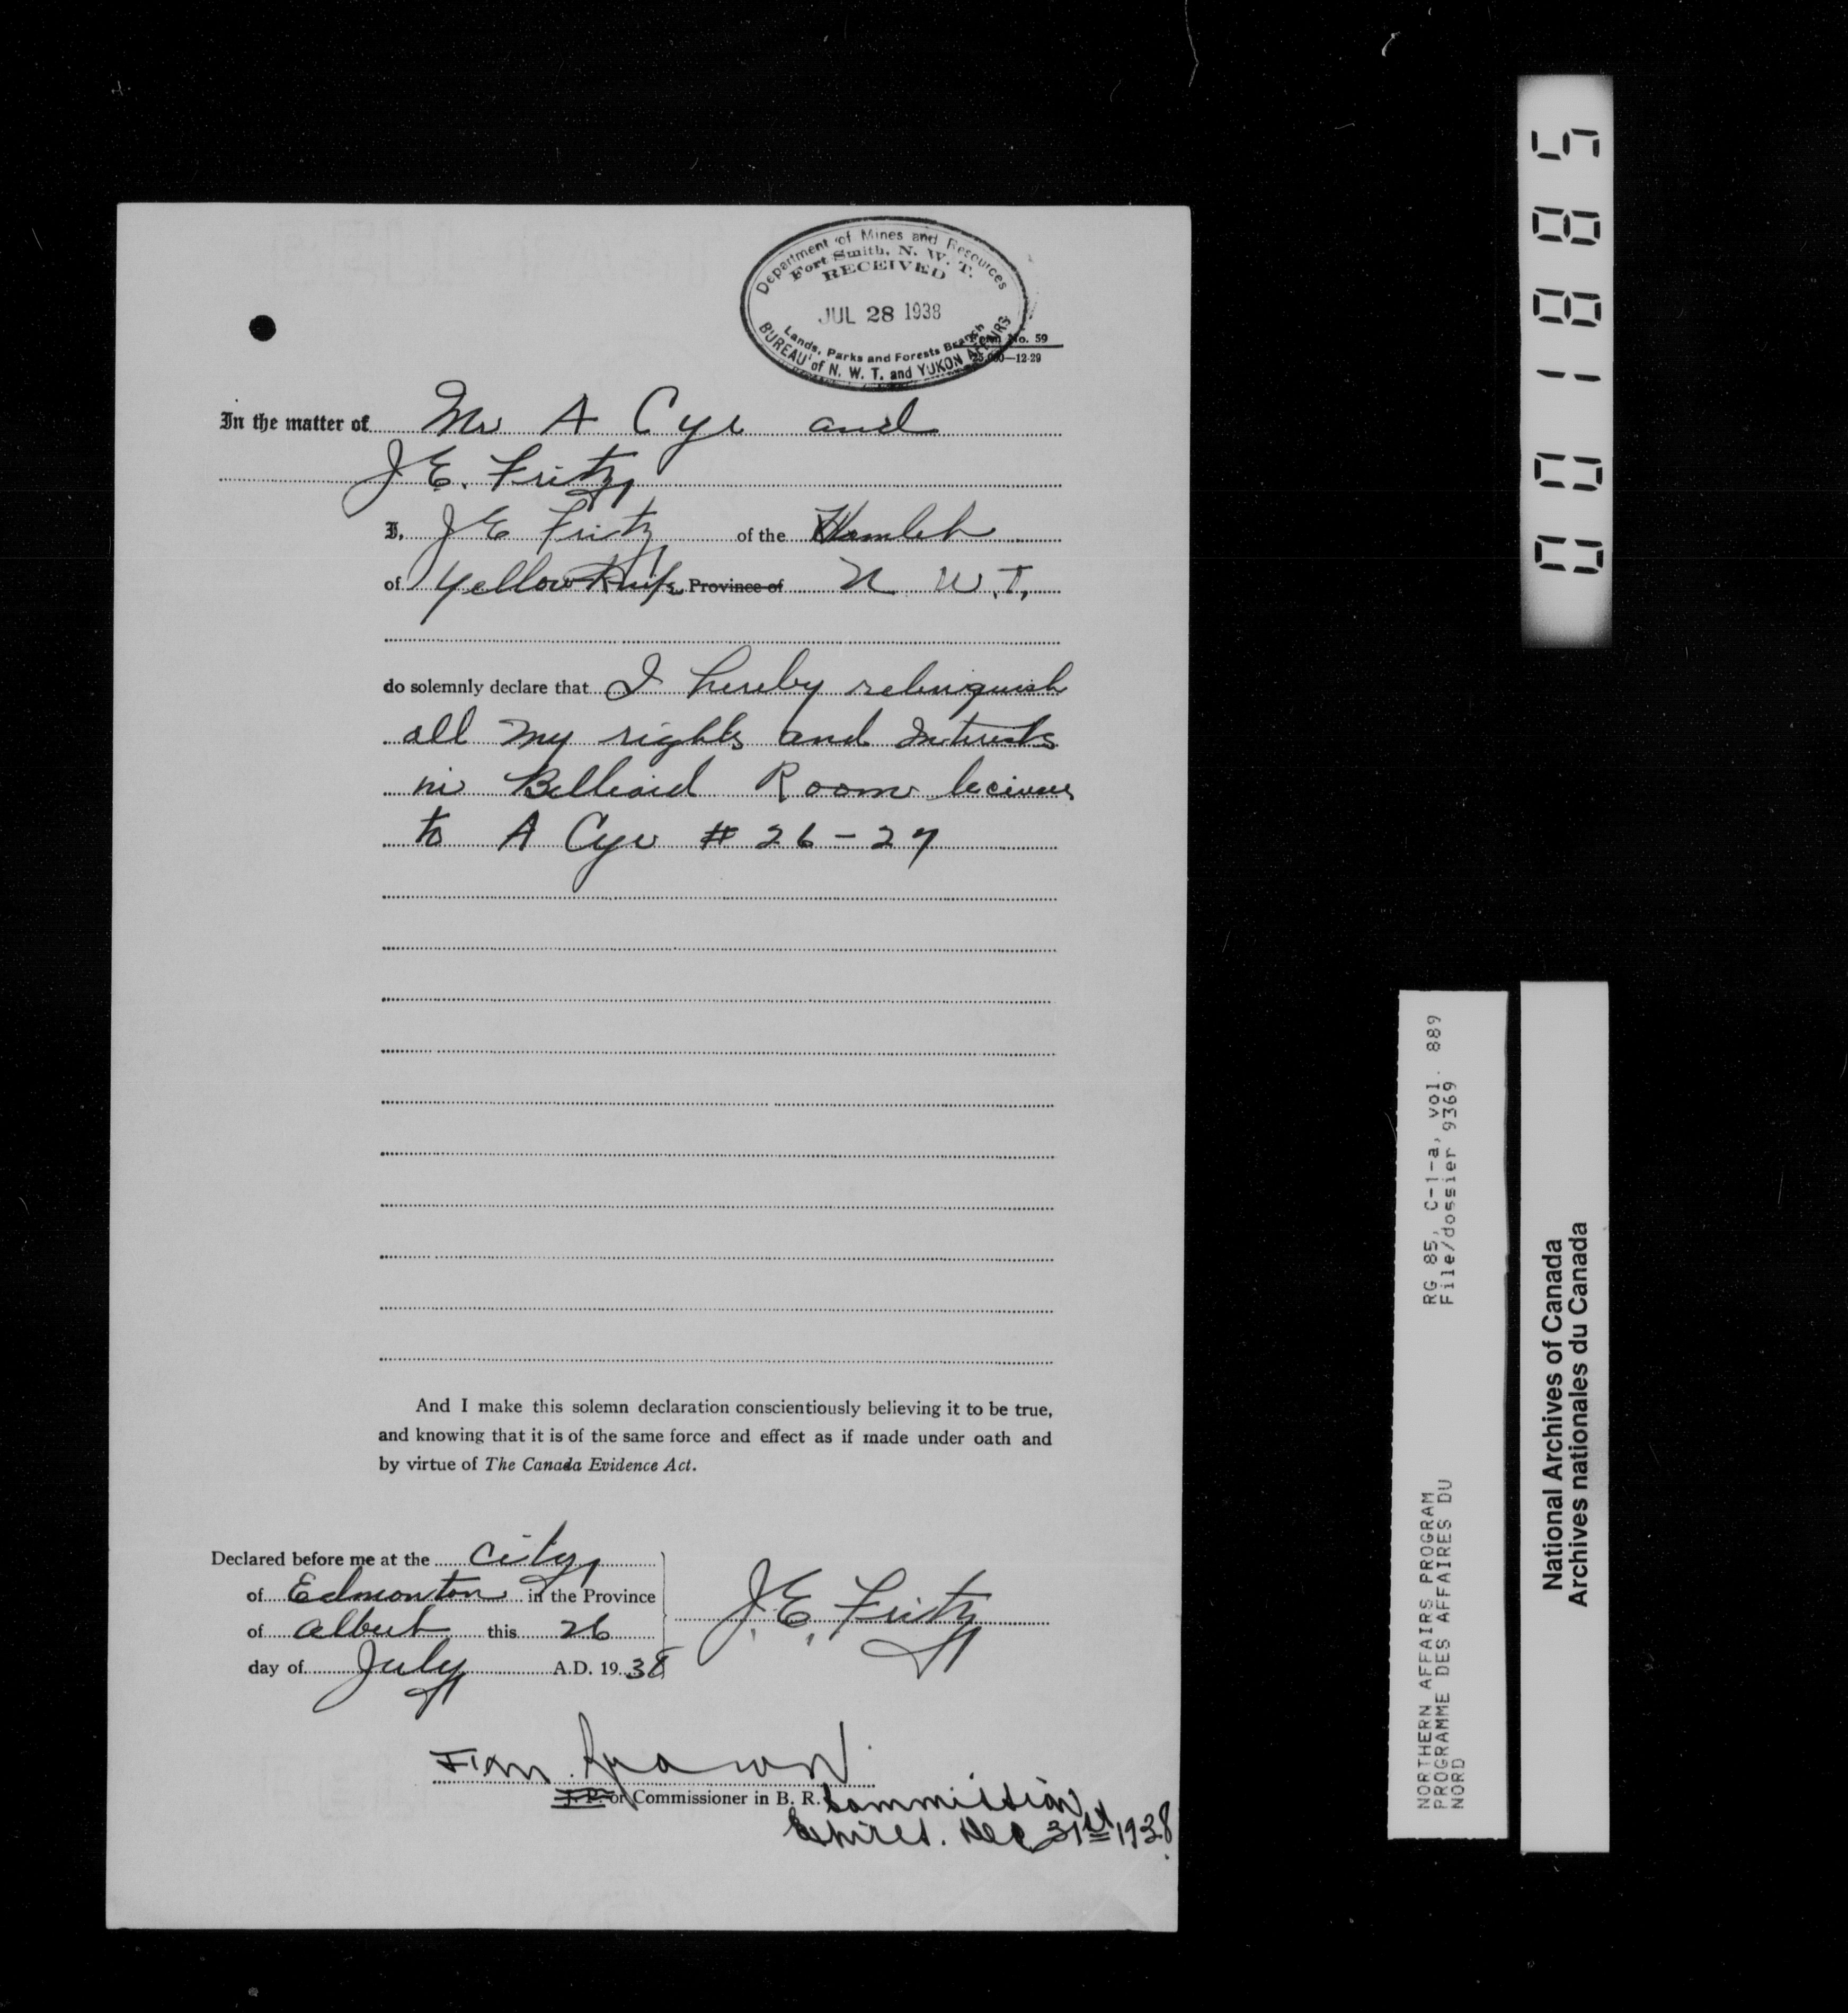 Department of Mines and Resources
Fort Smith, N. W. T.
RECEIVED
JUL 28 1938
Lands, Parks and Forests Branch
BUREAU of N. W. T. and YUKON AFFAIRS
Form No. 59
25,000—12-29
In the matter of Mr A Cyr and
J.E. Fritz
I, J E Fritz of the Hamlet
of Yellow Knife Province of N. W. T.
do solemnly declare that I hereby relinquish
all my rights and Interests
in Billiard Room
to A Cyr # 26-27
And I make this solemn declaration conscientiously believing it to be true,
and knowing that it is of the same force and effect as if made under oath and
by virtue of The Canada Evidence Act.
Declared before me at the City
of Edmonton in the Province
of Albert this 26
day of July A.D. 1938
J. E. Fritz
J. P. or Commissioner in B. R. Commission
Expires. Dec 31st 1938
001885
RG 85, C-1-a, vol. 889
File/dossier 9369
NORTHERN AFFAIRS PROGRAM
PROGRAMME DES AFFAIRES DU
NORD
National Archives of Canada
Archives nationales du Canada